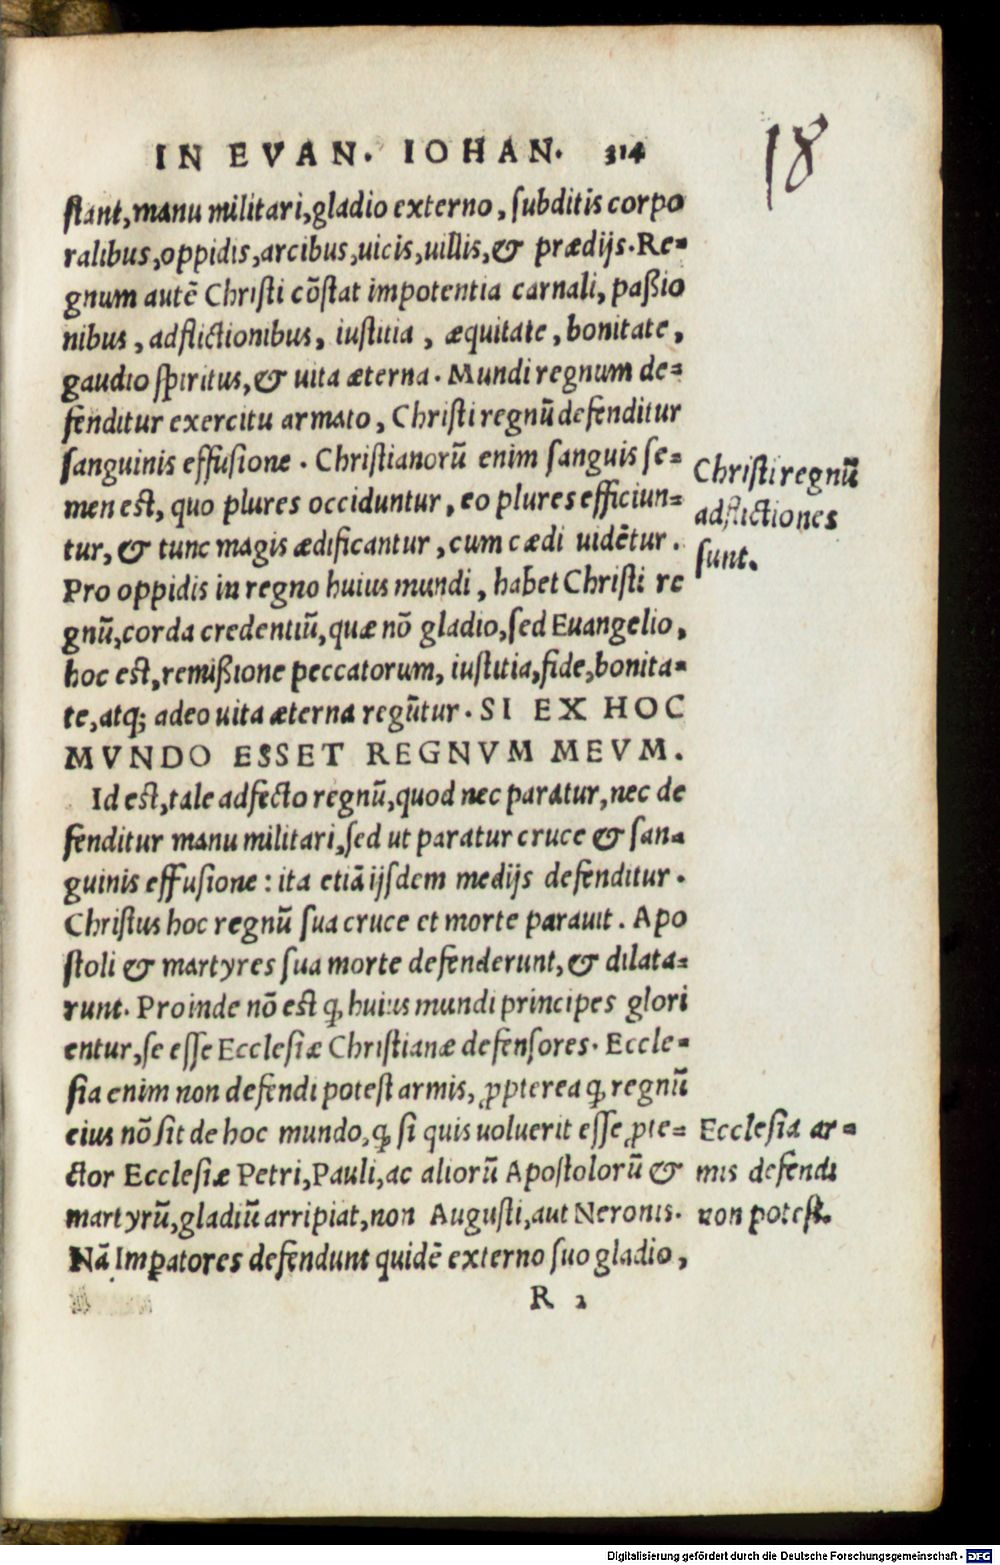 IN EVAN. IOHAN. 314
18
ſtant, manu militari, gladio externo, ſubditis corpo
ralibus, oppidis, arcibus, uicis, uillis, & prædijs. Re-
gnum autē Chriſti cōſtat impotentia carnali, paßio
nibus, adflictionibus, iuſtitia, æquitate, bonitate,
gaudio ſpiritus, & uita æterna. Mundi regnum de-
fenditur exercitu armato, Chriſti regnū defenditur
ſanguinis effuſione. Chriſtianorū enim ſanguis ſe-
men eſt, quo plures occiduntur, eo plures efficiun-
tur, & tunc magis ædificantur, cum cædi uidētur.
Chriſti regnū
adflictiones
ſunt.
Pro oppidis in regno huius mundi, habet Chriſti re
gnū, corda credentiū, quæ nō gladio, ſed Euangelio,
hoc eſt, remißione peccatorum, iuſtitia, fide, bonita-
te, atq; adeo uita æterna regūtur. SI EX HOC
MVNDO ESSET REGNVM MEVM.
Id eſt, tale adfecto regnū, quod nec paratur, nec de
fenditur manu militari, ſed ut paratur cruce & ſan-
guinis effuſione: ita etiā ijſdem medijs defenditur.
Chriſtus hoc regnū ſua cruce et morte parauit. Apo
ſtoli & martyres ſua morte defenderunt, & dilata-
runt. Proinde nō eſt ꝙ huius mundi principes glori
entur, ſe eſſe Eccleſiæ Chriſtianæ defenſores. Eccle-
ſia enim non defendi poteſt armis, ꝓpterea ꝙ regnū
eius nō ſit de hoc mundo, ꝙ ſi quis uoluerit eſſe ꝓte-
ctor Eccleſiæ Petri, Pauli, ac aliorū Apoſtolorū &
martyrū, gladiū arripiat, non Auguſti, aut Neronis.
Nā Imꝑatores defendunt quidē externo ſuo gladio,
Eccleſia ar-
mis defendi
non poteſt.
R 2
Digitalisierung gefördert durch die Deutsche Forschungsgemeinschaft - DFG